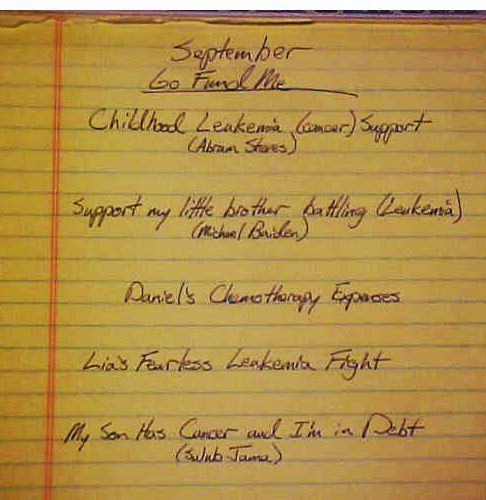 September
Go Fund Me
Childhood Leukemia (cancer) Support
(Abram Stores)
Support my little brother battling (Leukemia)
(Michael Baiden)
Daniel's Chemotherapy Expenses
Lia's Fearless Leukemia Fight
My Son Has Cancer and I'm in Debt
(Salub Jama)